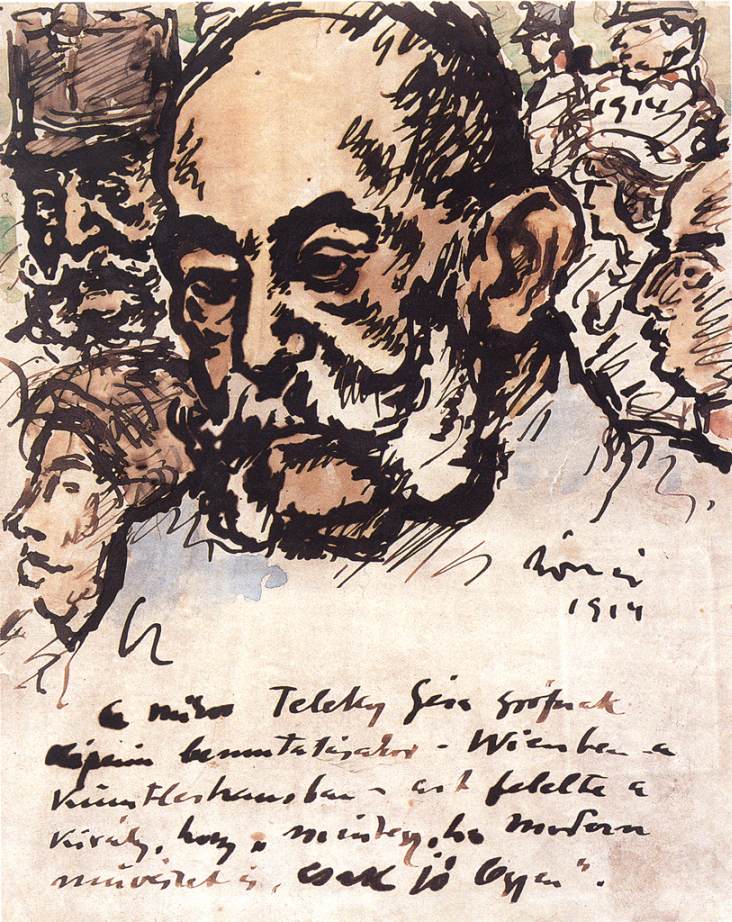 1914
Rónai
1914
A mikor Teleky Géza grófnak
képeim bemutatásakor - Wienben a
Künstlerhausban - azt felelte a
király, hogy „mindegy, ha modern
művészet is, csak jó legyen".